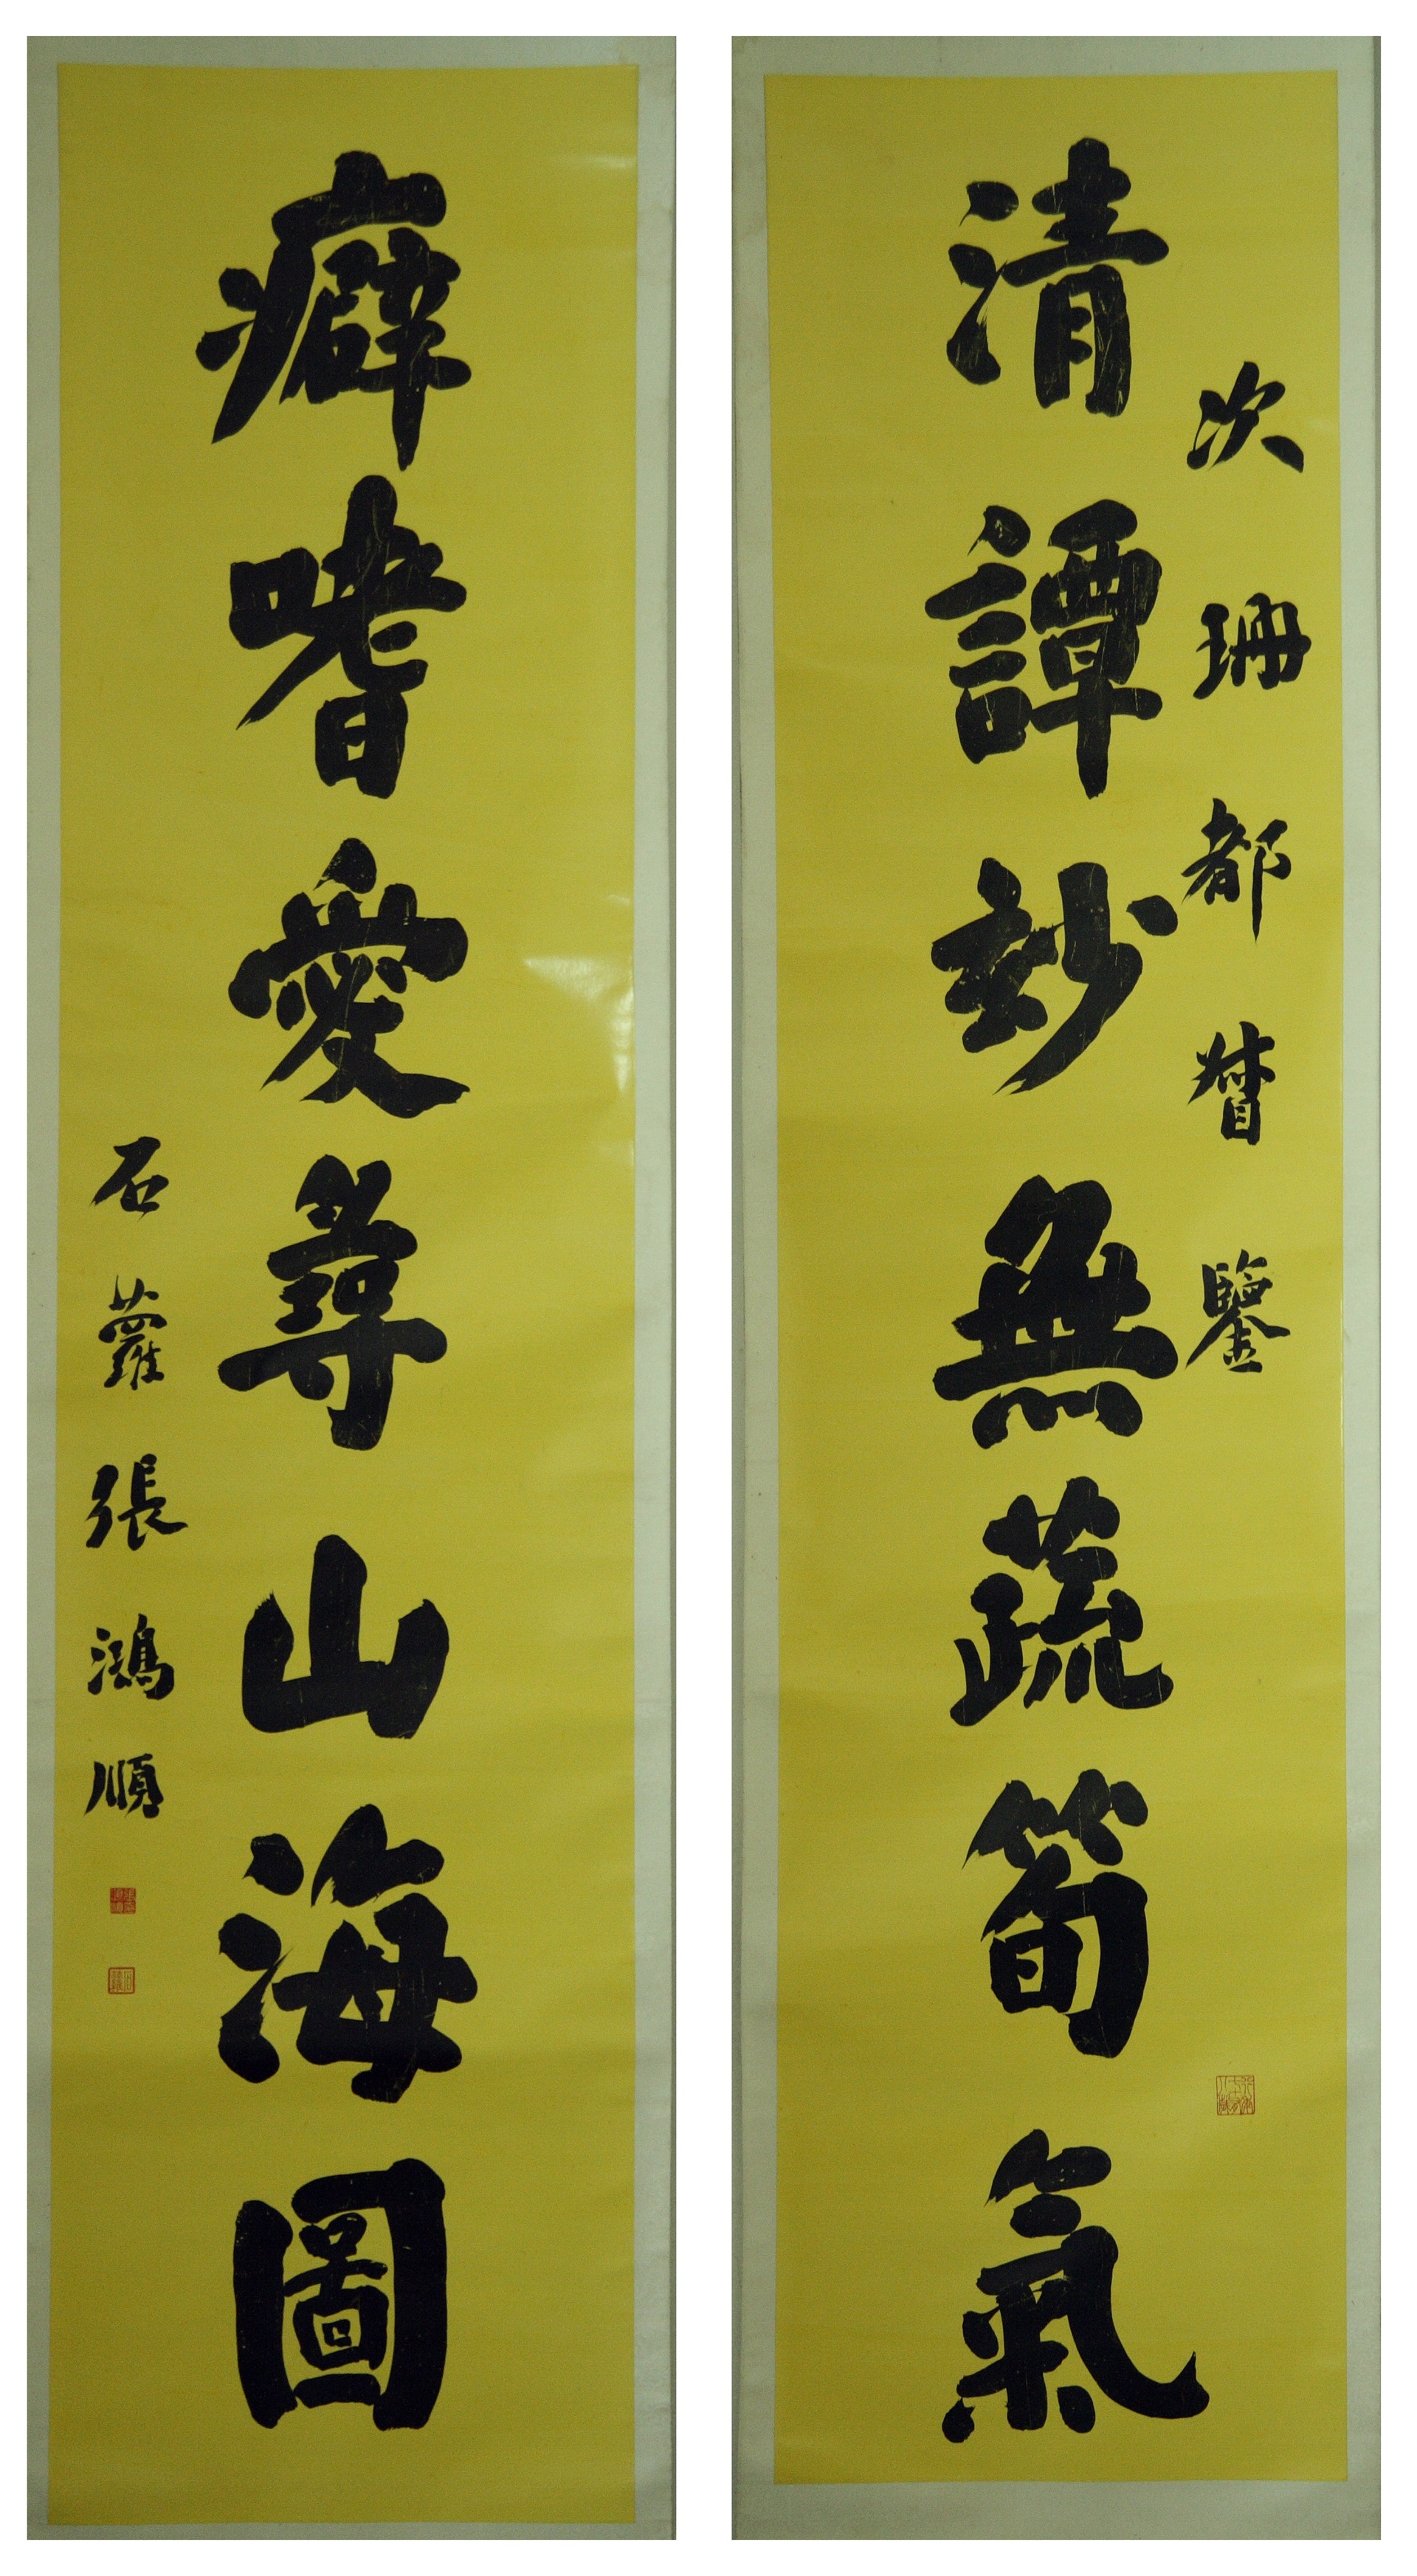 次珊都督鑒
清譚玅無蔬筍氣
癖嗜愛尋山海圖
石蘿張鴻順